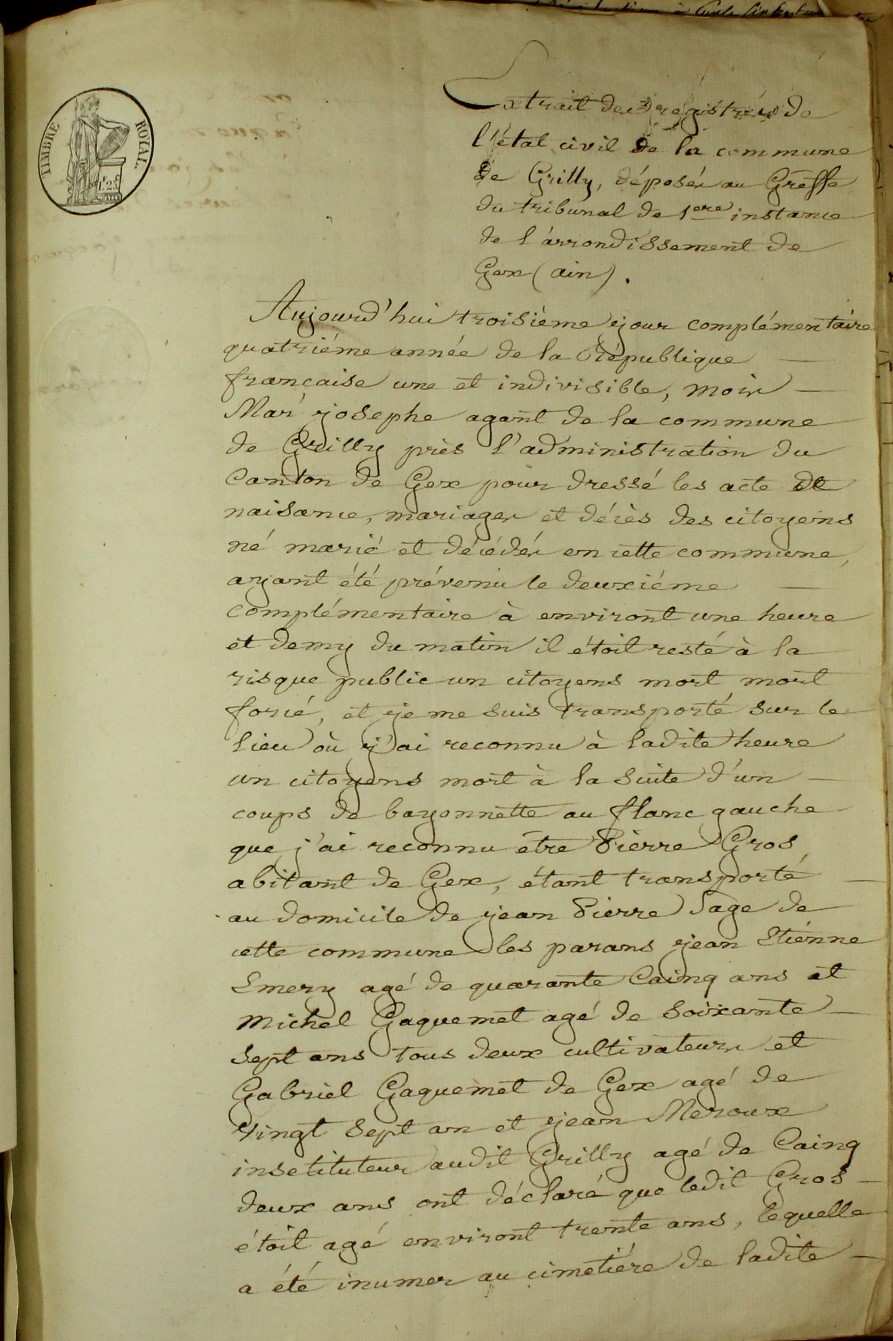 TIMBRE ROYAL
Extrait des régistres de
l'état civil de la commune
de Grilly, déposés au Greffe
du tribunal de 1ere instance
de l'arrondissement de
Gex (ain).
Aujourd'hui troisiéme jour complémentaire
quatriéme année de la République
francaise une et indivisible, moi
Mari josephe agant de la commune
de Grilly près l'administration du
Canton de Gex pour dressé les acte de
naisance, mariages et décès des citoyens
né marié et décédés en cette commune,
ayant été prévenu le deuxiéme
complémentaire à environt une heure
et demy du matin il étoit resté à la
risque public un citoyens mort mort
forcé, et je me suis transporté sur le
lieu où j'ai reconnu à ladite heure
un citoyens mort à la suite d'un
coups de bayonnette au flanc gauche
que j'ai reconnu être Pierre Gros
abitant de Gex, étant transporté
au domicile de jean Pierre Sage de
cette commune les parans jean Etiénne
Emery agé de quarante Cainq ans et
Michel Gaquemet agé de Soixante
Sept ans tous deux cultivateurs et
Gabriel Gaquemet de Gex agé de
vingt Sept an et jean Meroux
instituteur audit Grilly agé de Cainq
deux ans ont déclaré que ledit Gros
étoit agé environt trente ans, lequelle
a été inumer au cimetiére de ladite